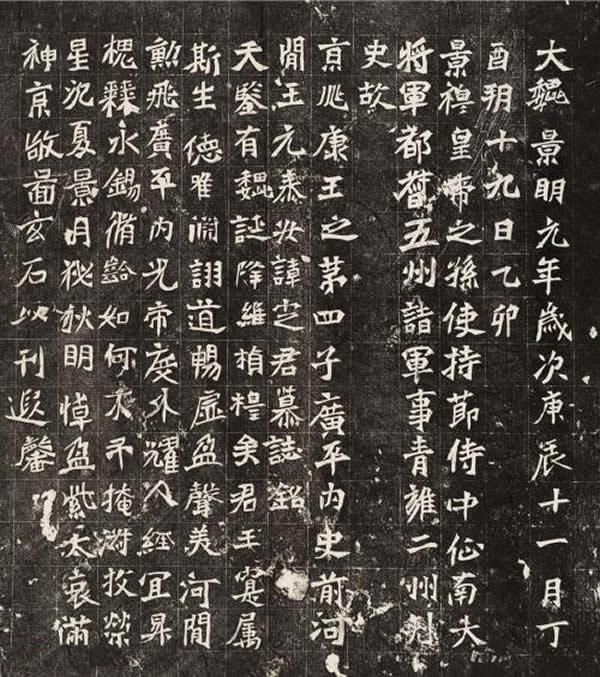 大魏景明元年歲次庚辰十一月丁
酉朔十九日乙卯
景穆皇帝之孫使持節侍中征南大
將軍都督五州諸軍事青雍二州刺
史故
京兆康王之第四子廣平內史前河
間王元泰安諱定君墓誌銘
天鑒有魏誕降維楨穆矣君王寔属
斯生德唯淵詡道暢虛盈聲美河間
勳飛廣平內光帝度外耀人經宜昇
槐鼐永錫脩齡如何不弔掩滯牧榮
星沉夏景月秘秋明悼盈紫太哀滿
神京敬啚玄石以刊遐馨